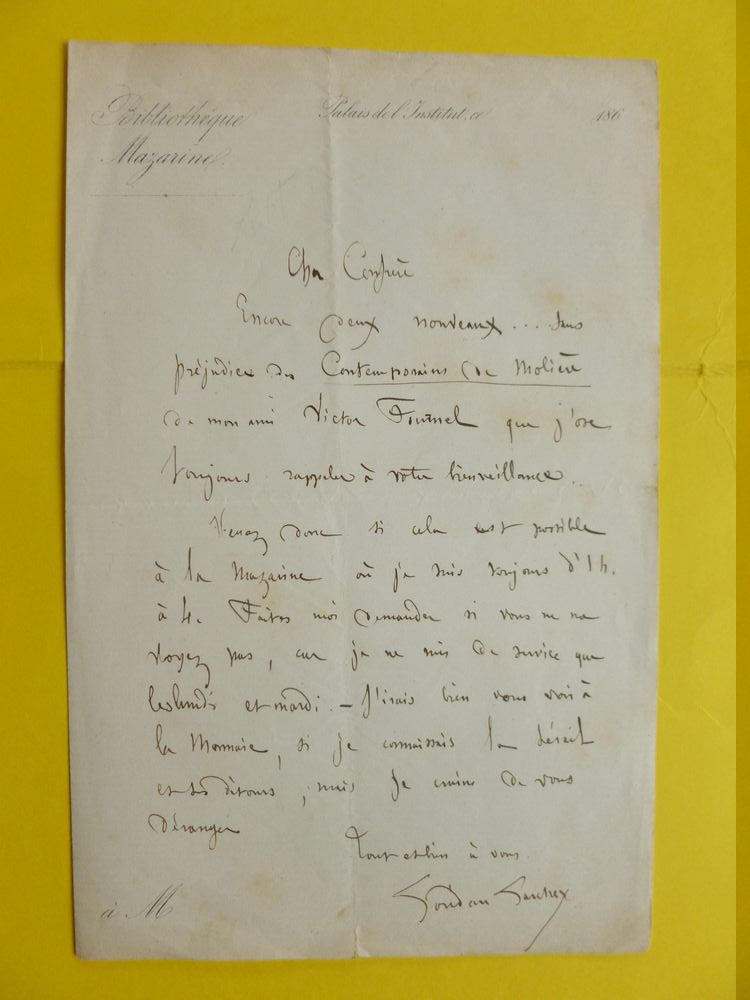 Bibliothèque
Mazarine.
Palais de l'Institut, ce 186
Cher Confrère
Encore deux nouveaux.... sans
préjudice des Contemporains de Molière
de mon ami Victor Fournel que j'ose
toujours rappeler à votre bienveillance..
Venez donc si cela est possible
à la Mazarine où je suis toujours d'1h.
à 4. Faites moi demander si vous ne me
voyez pas, car je ne suis de service que
les lundi et mardi. — J'irais bien vous voir à
la Monnaie, si je connaissais le détroit
et ses détours, mais je crains de vous
déranger
Tout et bien à vous
à M